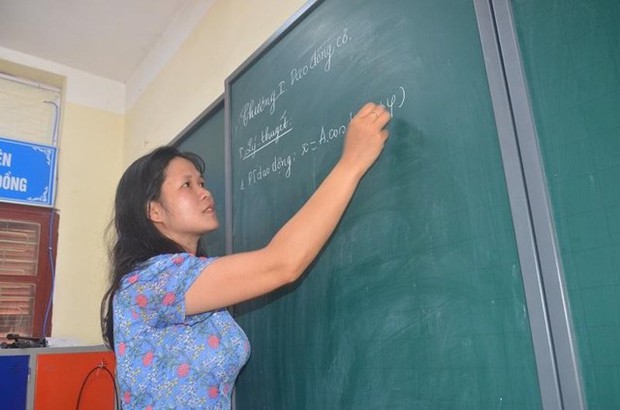 Chương I: Dao động cơ.
I. Lý thuyết:
1. PT dao động: x = A.cos( φ)
ÊN
ĐỒNG